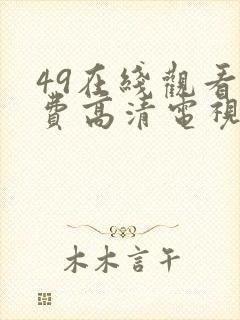 49在綫觀看
費高清電視
木木言午